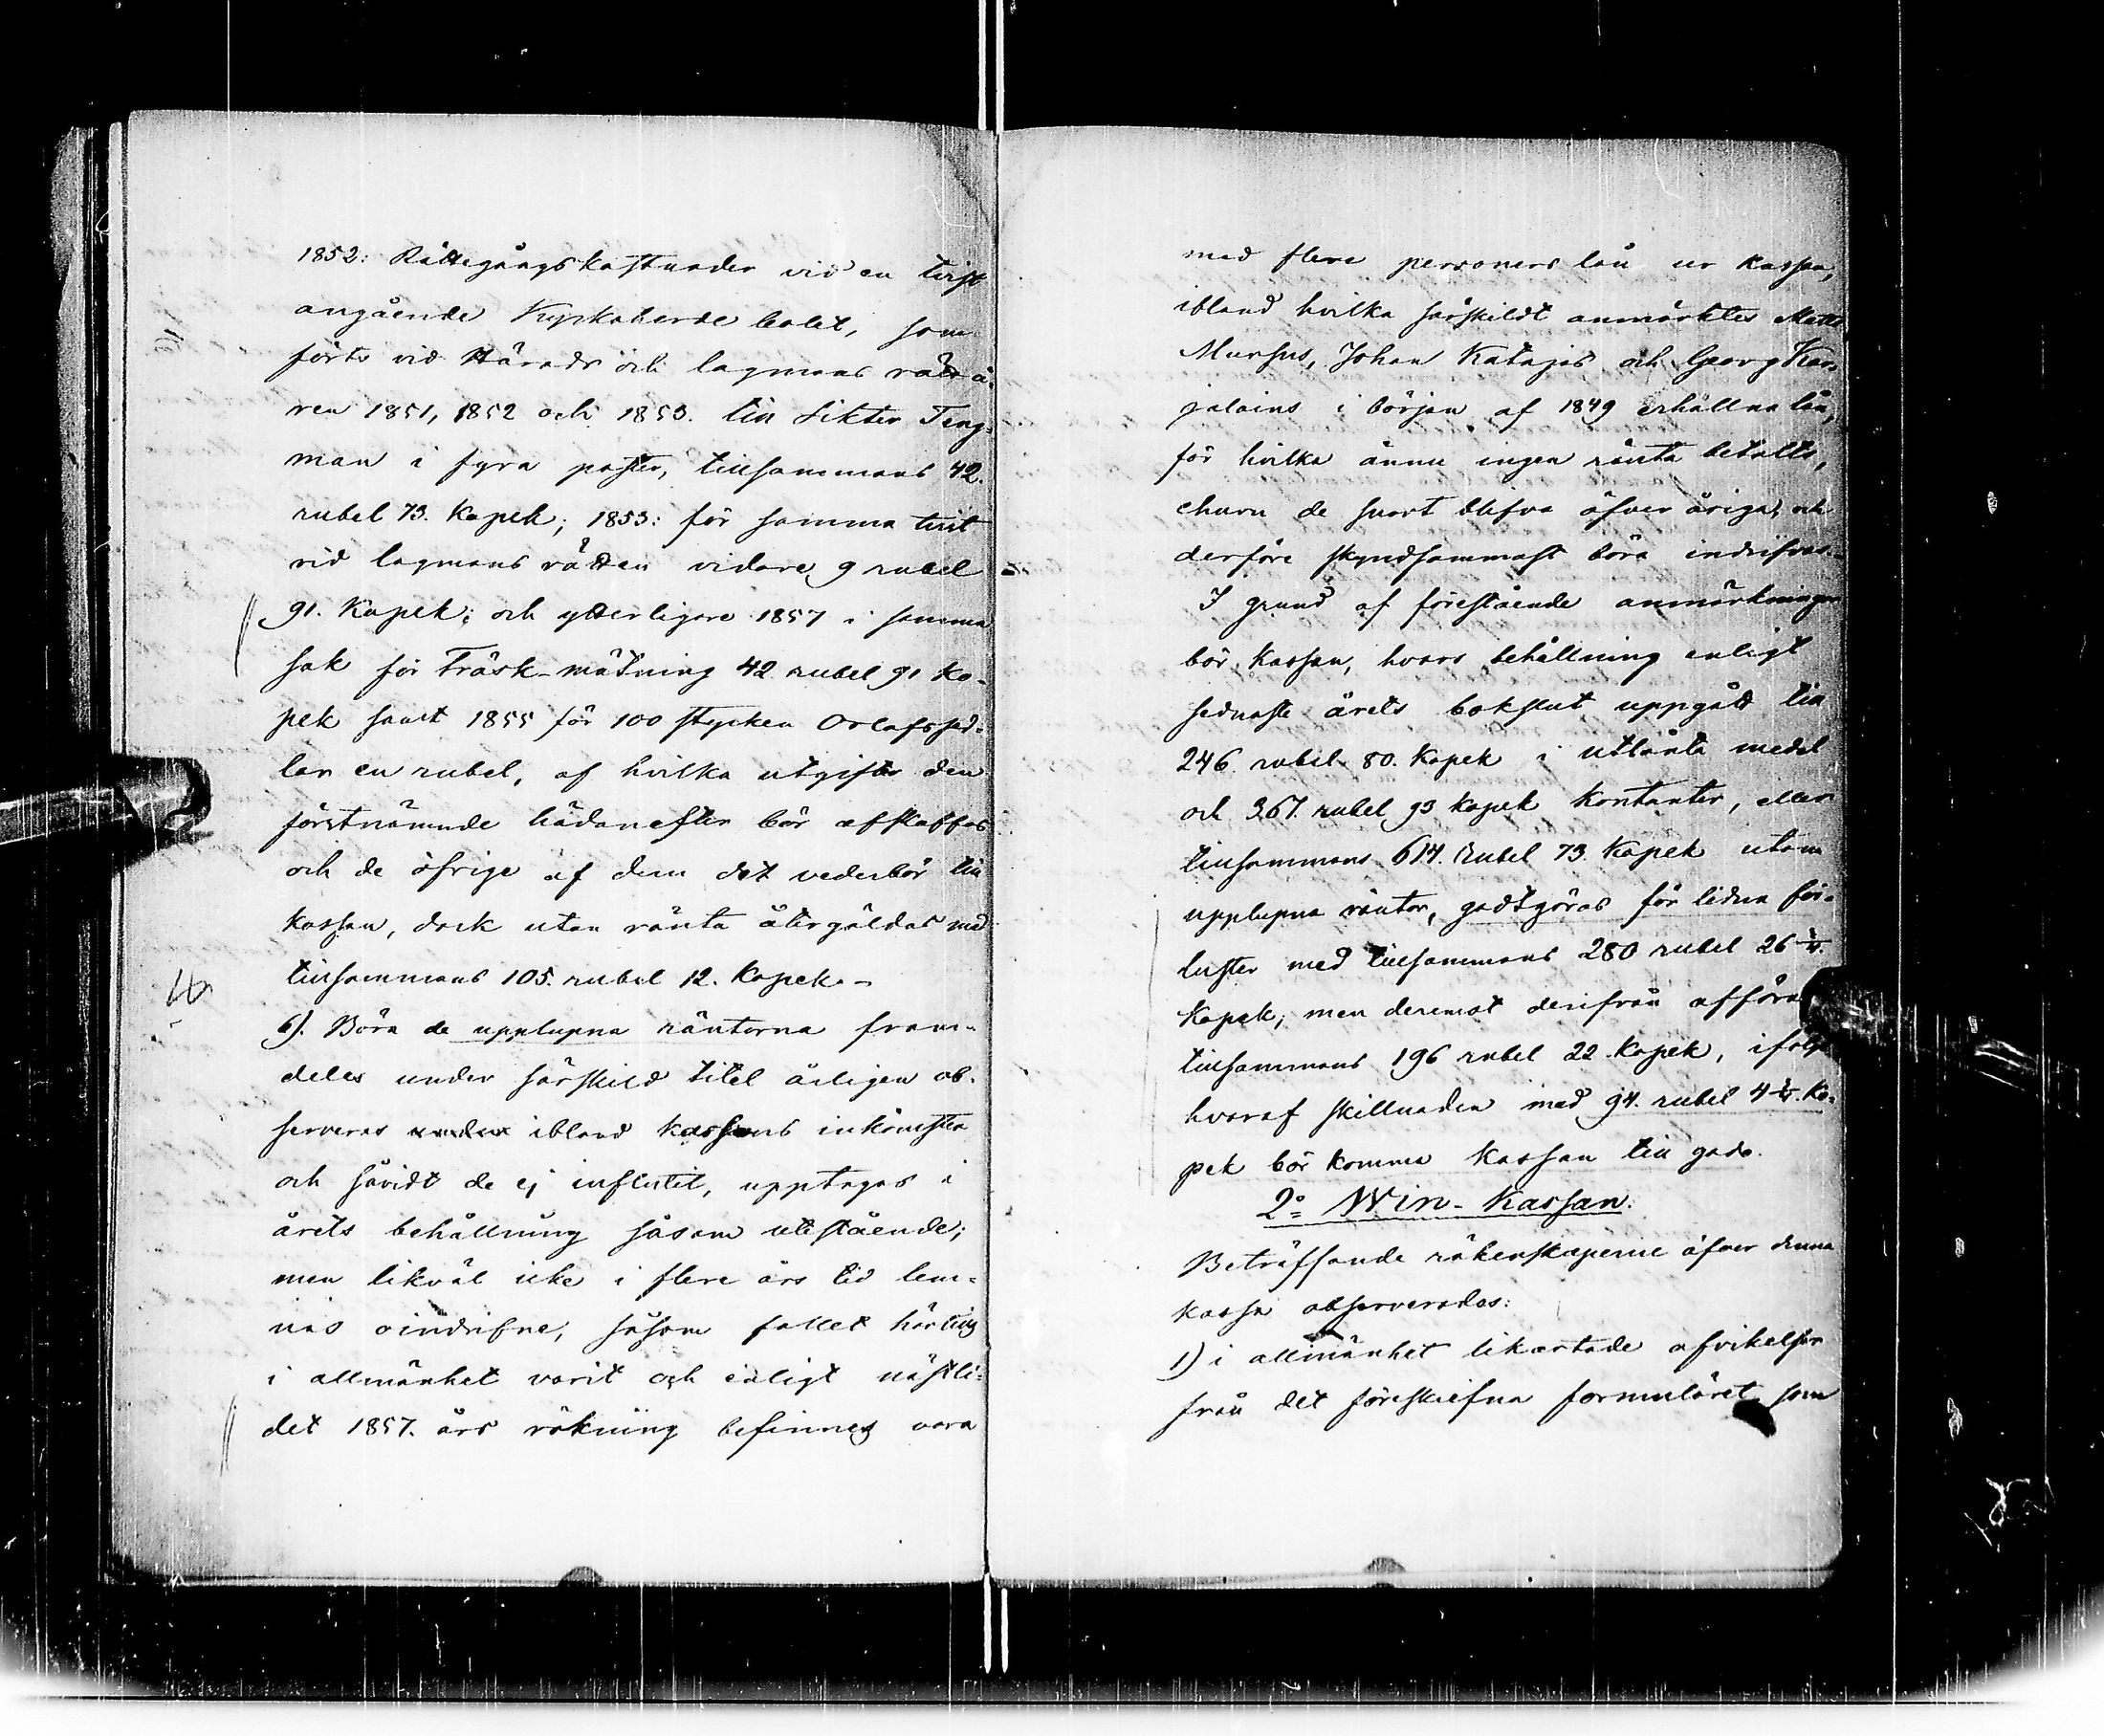 1852: Rättegångskostnader vid en tvist
angående Kyrkoherde bolet, som
förts vid Härads och lagmans rätt å-
ren 1851, 1852 och 1853. till Sikter Teng-
man i fyra poster, tillsammans 42.
rubel 73. kopek; 1853: för samma tvist
vid lagmans rätten vidare 9 rubel
91. Kopek; och ytterligare 1857 i samma
sak för Träsk-mätning 42 rubel 91 ko-
pek samt 1855 för 100 stycken Orlafssed-
lar en rubel, af hvilka utgifter den
förstnämnde hädanefter bör afskaffas
och de öfrige af dem det vederbör till
kassan, dock utan ränta återgäldas med
tillsammans 105. rubel 12. kopek.-
6). Böra de upplupna räntorna fram-
deles under särskild titel årligen ob-
serveras under ibland kassans inkomster
och såvidt de ej influtit, upptagas i
årets behållning såsom utestående;
men likväl icke i flere års tid lem-
nas oindrifne, såsom fallet härtills
i allmänhet varit och enligt nästli-
det 1857. års räkning befinnes vara
med flere personers lån ur kassan,
ibland hvilka särskildt anmärktes Matts
Mursus, Johan Katajas och Georg Kar-
jalains i början af 1849 erhållna lån,
för hvilka ännu ingen ränta betalts,
ehuru de snart blifva öfver åriga, och
derföre skyndsammast böra indrifvas.-
I grund af förestående anmärkningar
bör Kassan, hvars behållning enligt
sednaste årets bokslut uppgått till
246. rubel 80. kopek i utlånta medel
och 367. rubel 93 kopek Kontanter, eller
tillsammans 614. rubel 73. Kopek utom
upplupna räntor, godtgöras för lidna för-
luster med tillsammans 280 rubel 26 1/4.
Kopek; men deremot derifrån afföras
tillsammans 196 rubel 22 kopek, ifölje
hvaraf skillnaden med 94. rubel 4 1/4. Ko-
pek bör komma Kassan till godo.
2:o Win-Kassan:
Beträffande räkenskaperne öfver denna
kassa observerades:
1) i allmänhet likartade afvikelser
från det föreskrifna formuläret, som